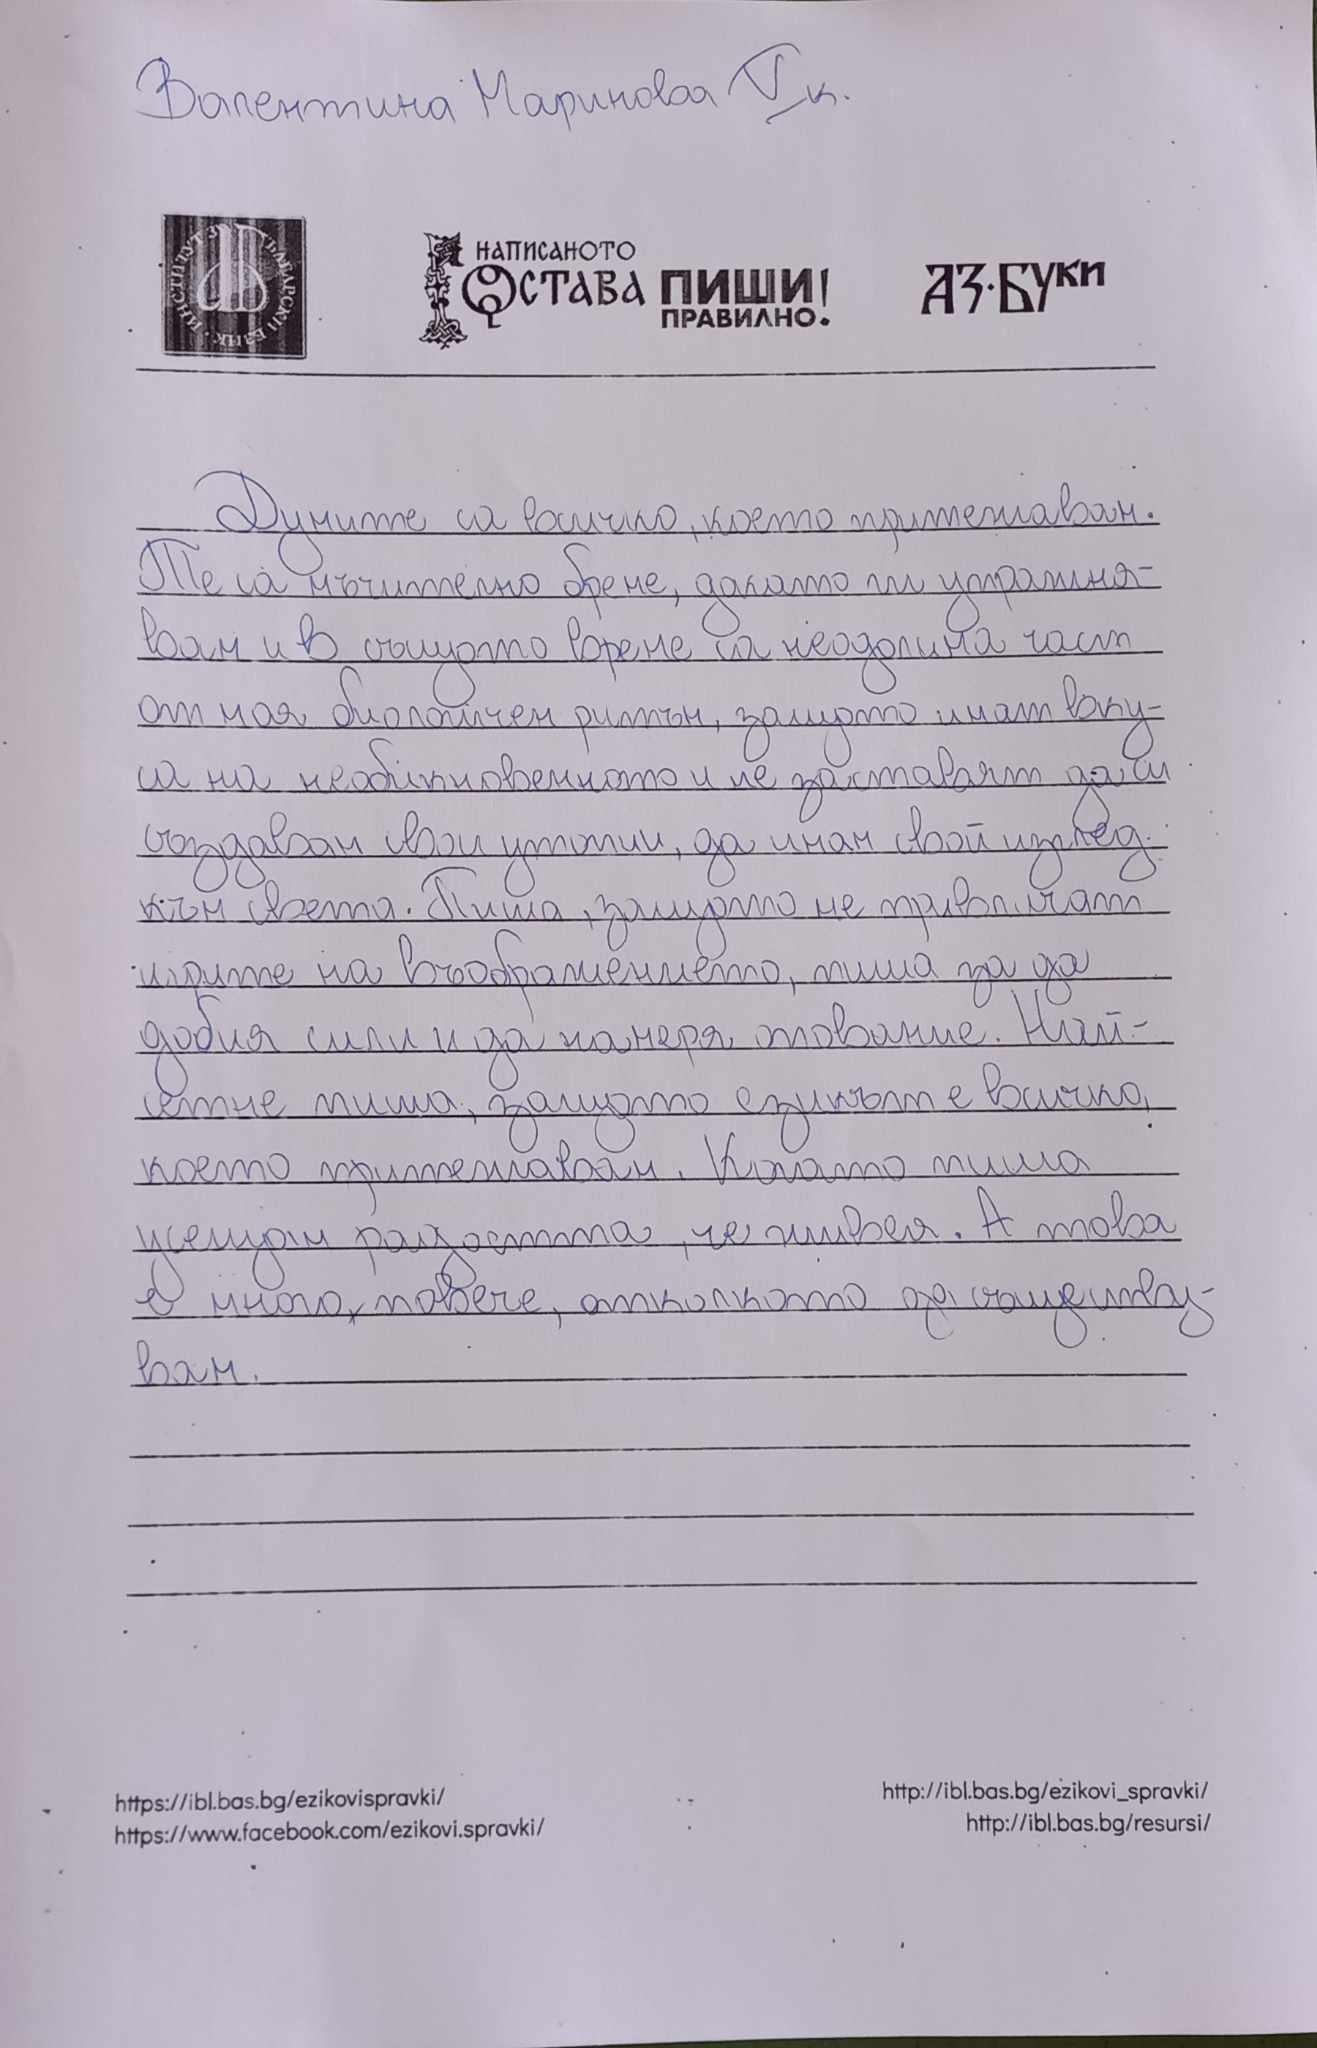 Валентина Маринова V к.
ИНСТИТУТ ЗА БЪЛГАРСКИ ЕЗИК
НАПИСАНОТО
ОСТАВА ПИШИ
ПРАВИЛНО!
АЗ·БУКИ
Думите са всичко, което притежавам.
Те са мъчително бреме, докато ги упражня-
вам и в същото време са неодолима част
от моя биологичен ритъм, защото имат вку-
са на необикновенното и ме заставят да си
създавам свои утопии, да имам свой изглед
към света. Пиша, защото ме привличат
игрите на въображението, пиша за да
добия сили и да намеря опование. Най-
сетне пиша, защото езикът е всичко,
което притежавам. Когато пиша
усещам радостта, че живея. А това
е много повече, отколкото да съществу-
вам.
https://ibl.bas.bg/ezikovispravki/
https://www.facebook.com/ezikovi.spravki/
http://ibl.bas.bg/ezikovi_spravki/
http://ibl.bas.bg/resursi/